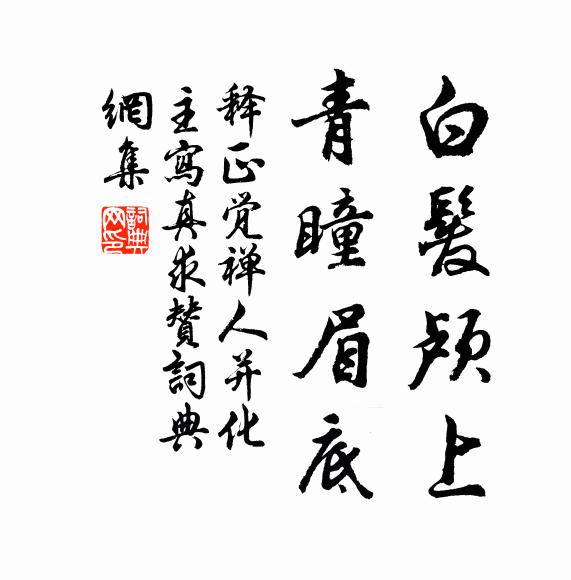 白髮颅上
青瞳眉底
释正觉禅人并化
主寫真求贊詞典
網集
詞典網印